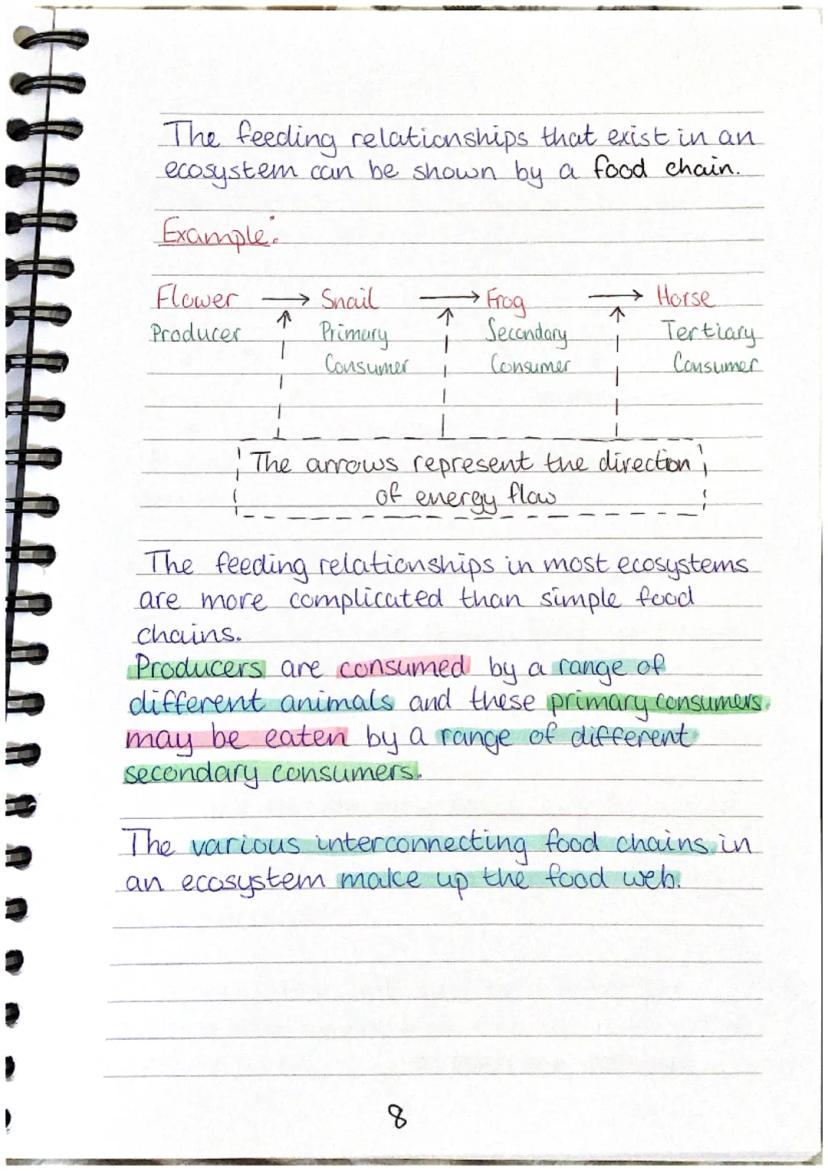 The feeding relationships that exist in an
ecosystem can be shown by a food chain.
Example:
Flower → Snail → Frog → Horse
Producer Primary Secondary Tertiary
Consumer Consumer Consumer
The arrows represent the direction
of energy flow
The feeding relationships in most ecosystems
are more complicated than simple food
chains.
Producers are consumed by a range of
different animals and these primary consumers
may be eaten by a range of different
secondary consumers.
The various interconnecting food chains in
an ecosystem make up the food web.
8